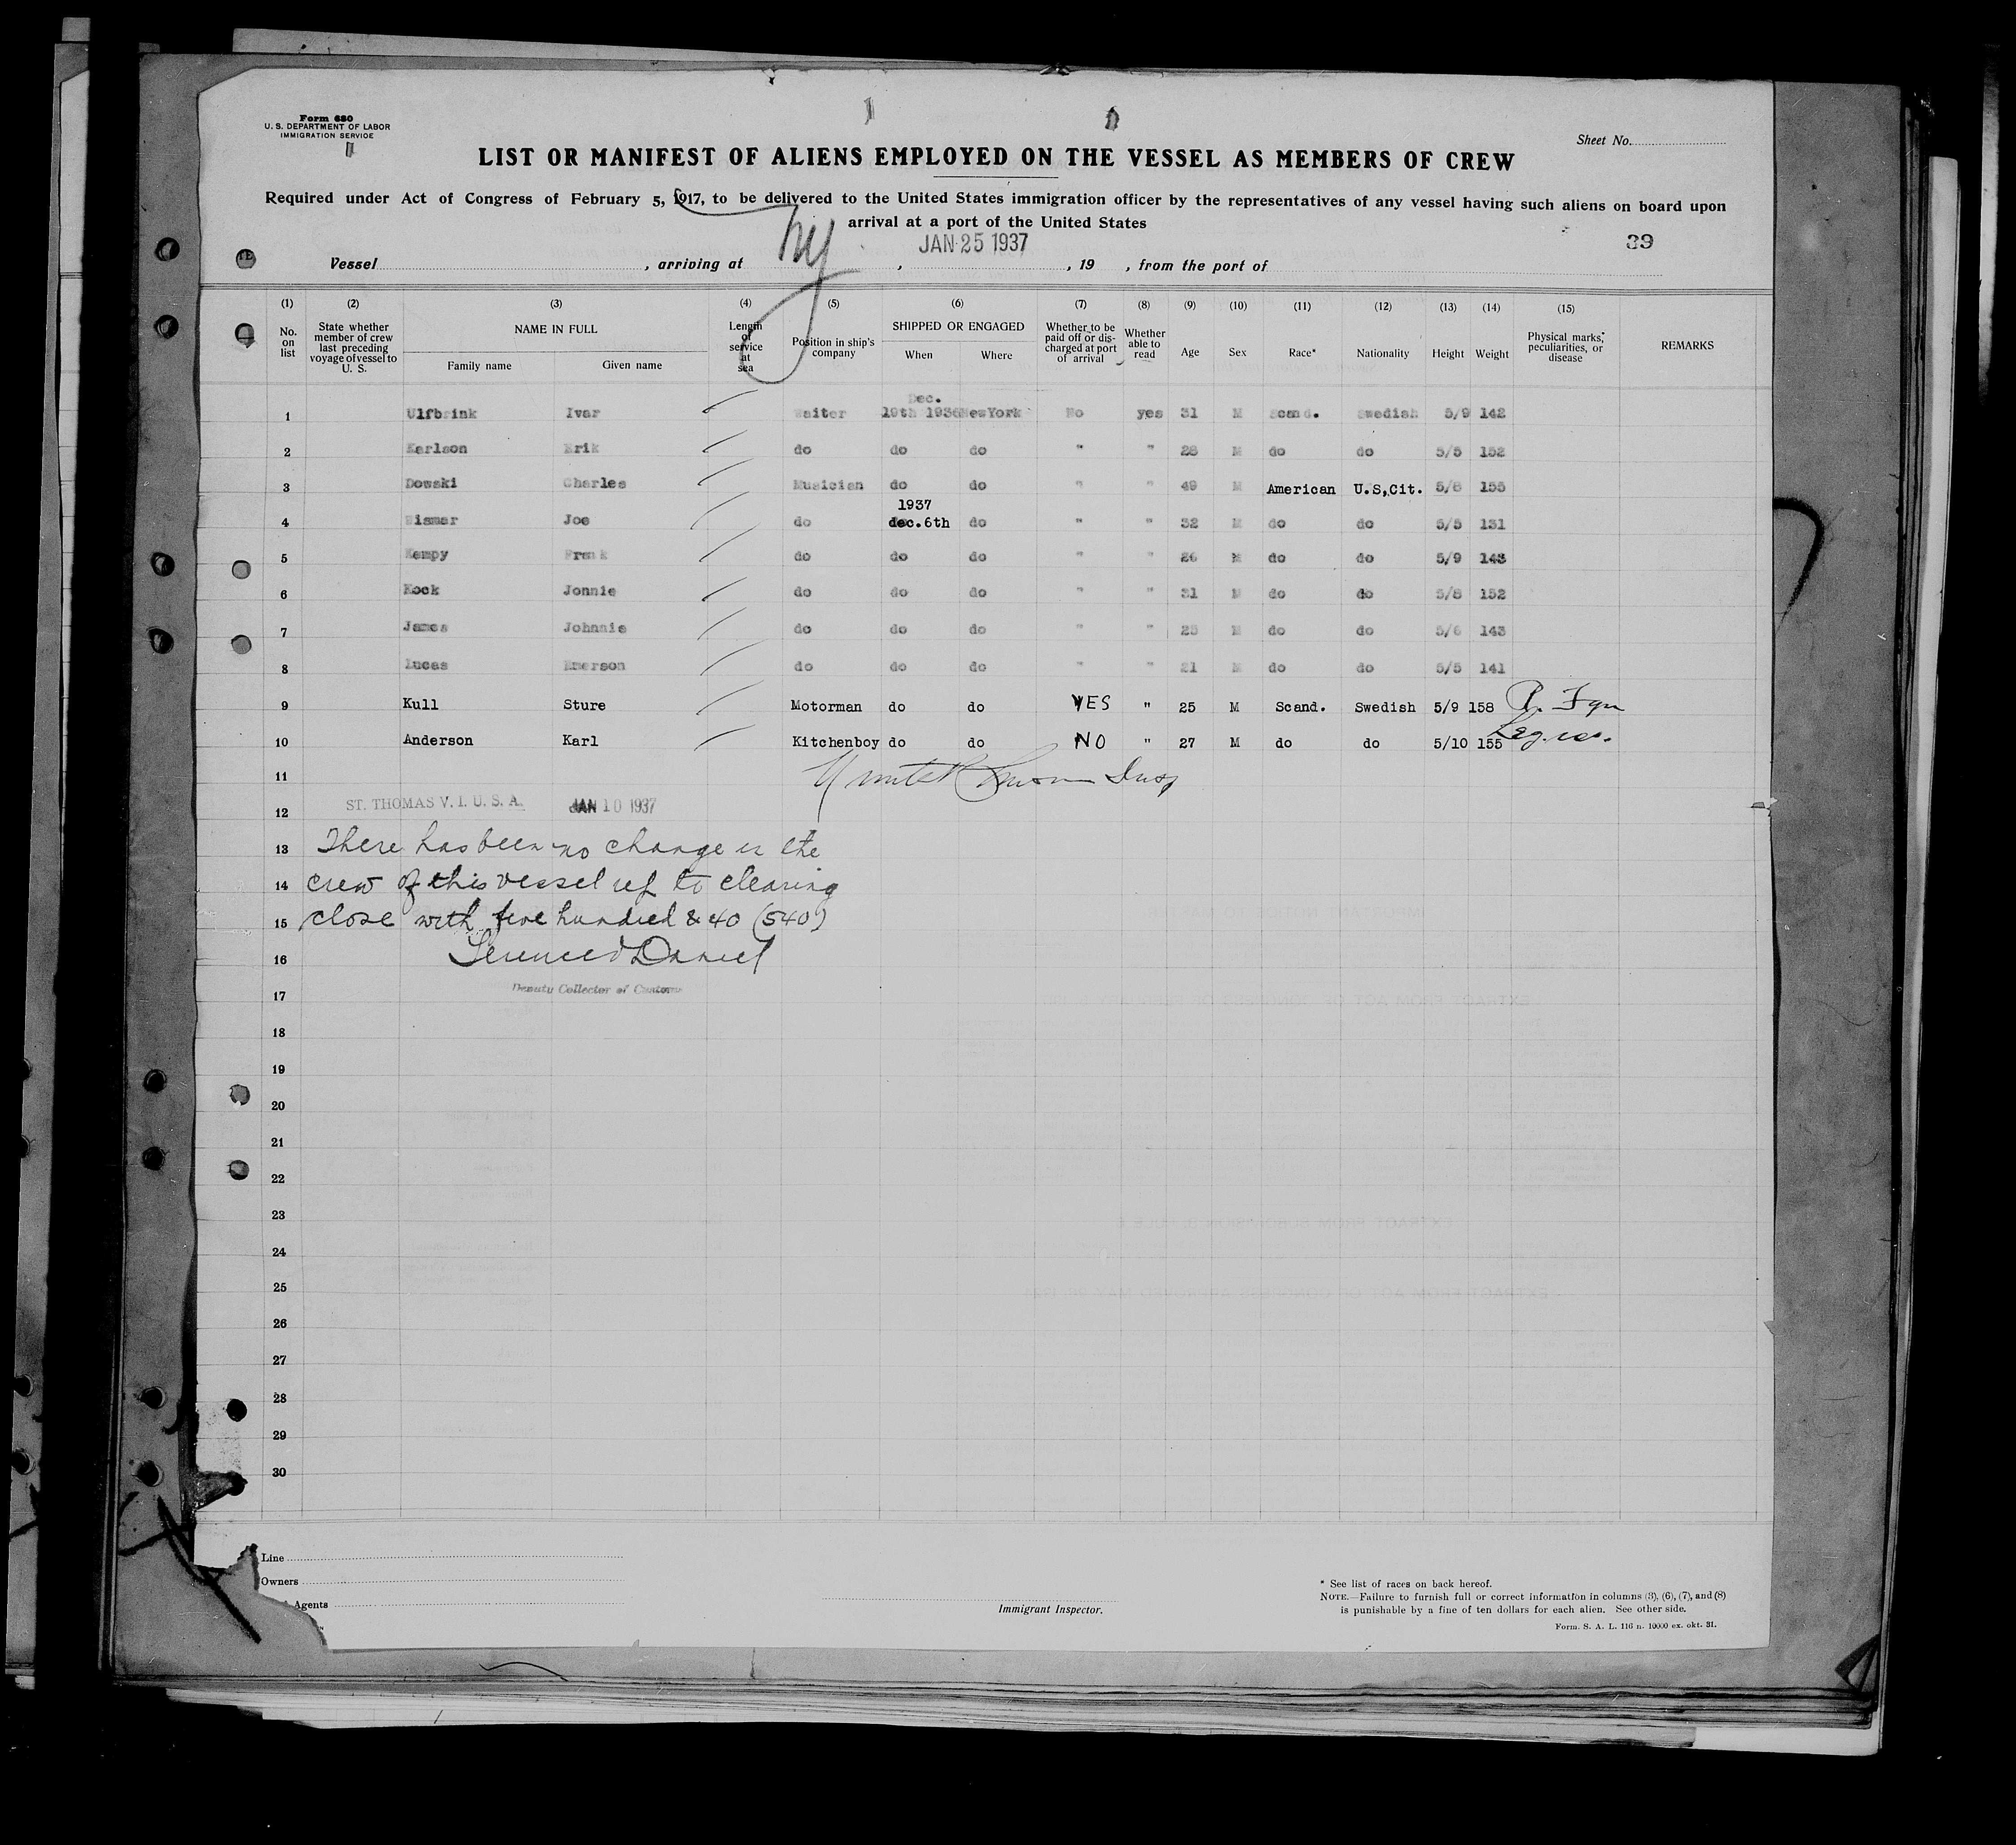 Form 680
U. S. DEPARTMENT OF LABOR
IMMIGRATION SERVICE
Sheet No.
LIST OR MANIFEST OF ALIENS EMPLOYED ON THE VESSEL AS MEMBERS OF CREW
Required under Act of Congress of February 5, 1917, to be delivered to the United States immigration officer by the representatives of any vessel having such aliens on board upon
arrival at a port of the United States
39
Vessel , arriving at Ny , JAN 25 1937 , 19 , from the port of
(1) (2) (3) (4) (5) (6) (7) (8) (9) (10) (11) (12) (13) (14) (15)
No. on list State whether member of crew last preceding voyage of vessel to U. S. NAME IN FULL Family name Given name Length of service at sea Position in ship's company SHIPPED OR ENGAGED When Where Whether to be paid off or discharged at port of arrival Whether able to read Age Sex Race* Nationality Height Weight Physical marks, peculiarities, or disease REMARKS
Dec.
1 Ulfbrink Ivar Waiter 19th 1936 NewYork No yes 31 M Scand. Swedish 5/9 142
2 Karlson Erik do do do " " 28 M do do 5/5 152
3 Dowski Charles Musician do do " " 49 M American U.S,Cit. 5/8 155
1937
4 Wismar Joe do dec.6th do " " 32 M do do 5/5 131
5 Kempy Frank do do do " " 26 M do do 5/9 143
6 Kock Jonnie do do do " " 31 M do do 5/8 152
7 James Johnnie do do do " " 25 M do do 5/6 143
8 Lucas Emerson do do do " " 21 M do do 5/5 141
9 Kull Sture Motorman do do YES " 25 M Scand. Swedish 5/9 158
10 Anderson Karl Kitchenboy do do NO " 27 M do do 5/10 155
11
12 ST. THOMAS V. I. U. S. A. JAN 10 1937
13 There has been no change in the
14 crew of this vessel up to clearing
15 close with five hundred & 40 (540)
16 Daniel
Deputy Collector of Customs
17
18
19
20
21
22
23
24
25
26
27
28
29
30
Line
Owners
Agents
Immigrant Inspector.
* See list of races on back hereof.
NOTE.—Failure to furnish full or correct information in columns (3), (6), (7), and (8)
is punishable by a fine of ten dollars for each alien. See other side.
Form. S. A. L. 116 n. 10000 ex. okt. 31.